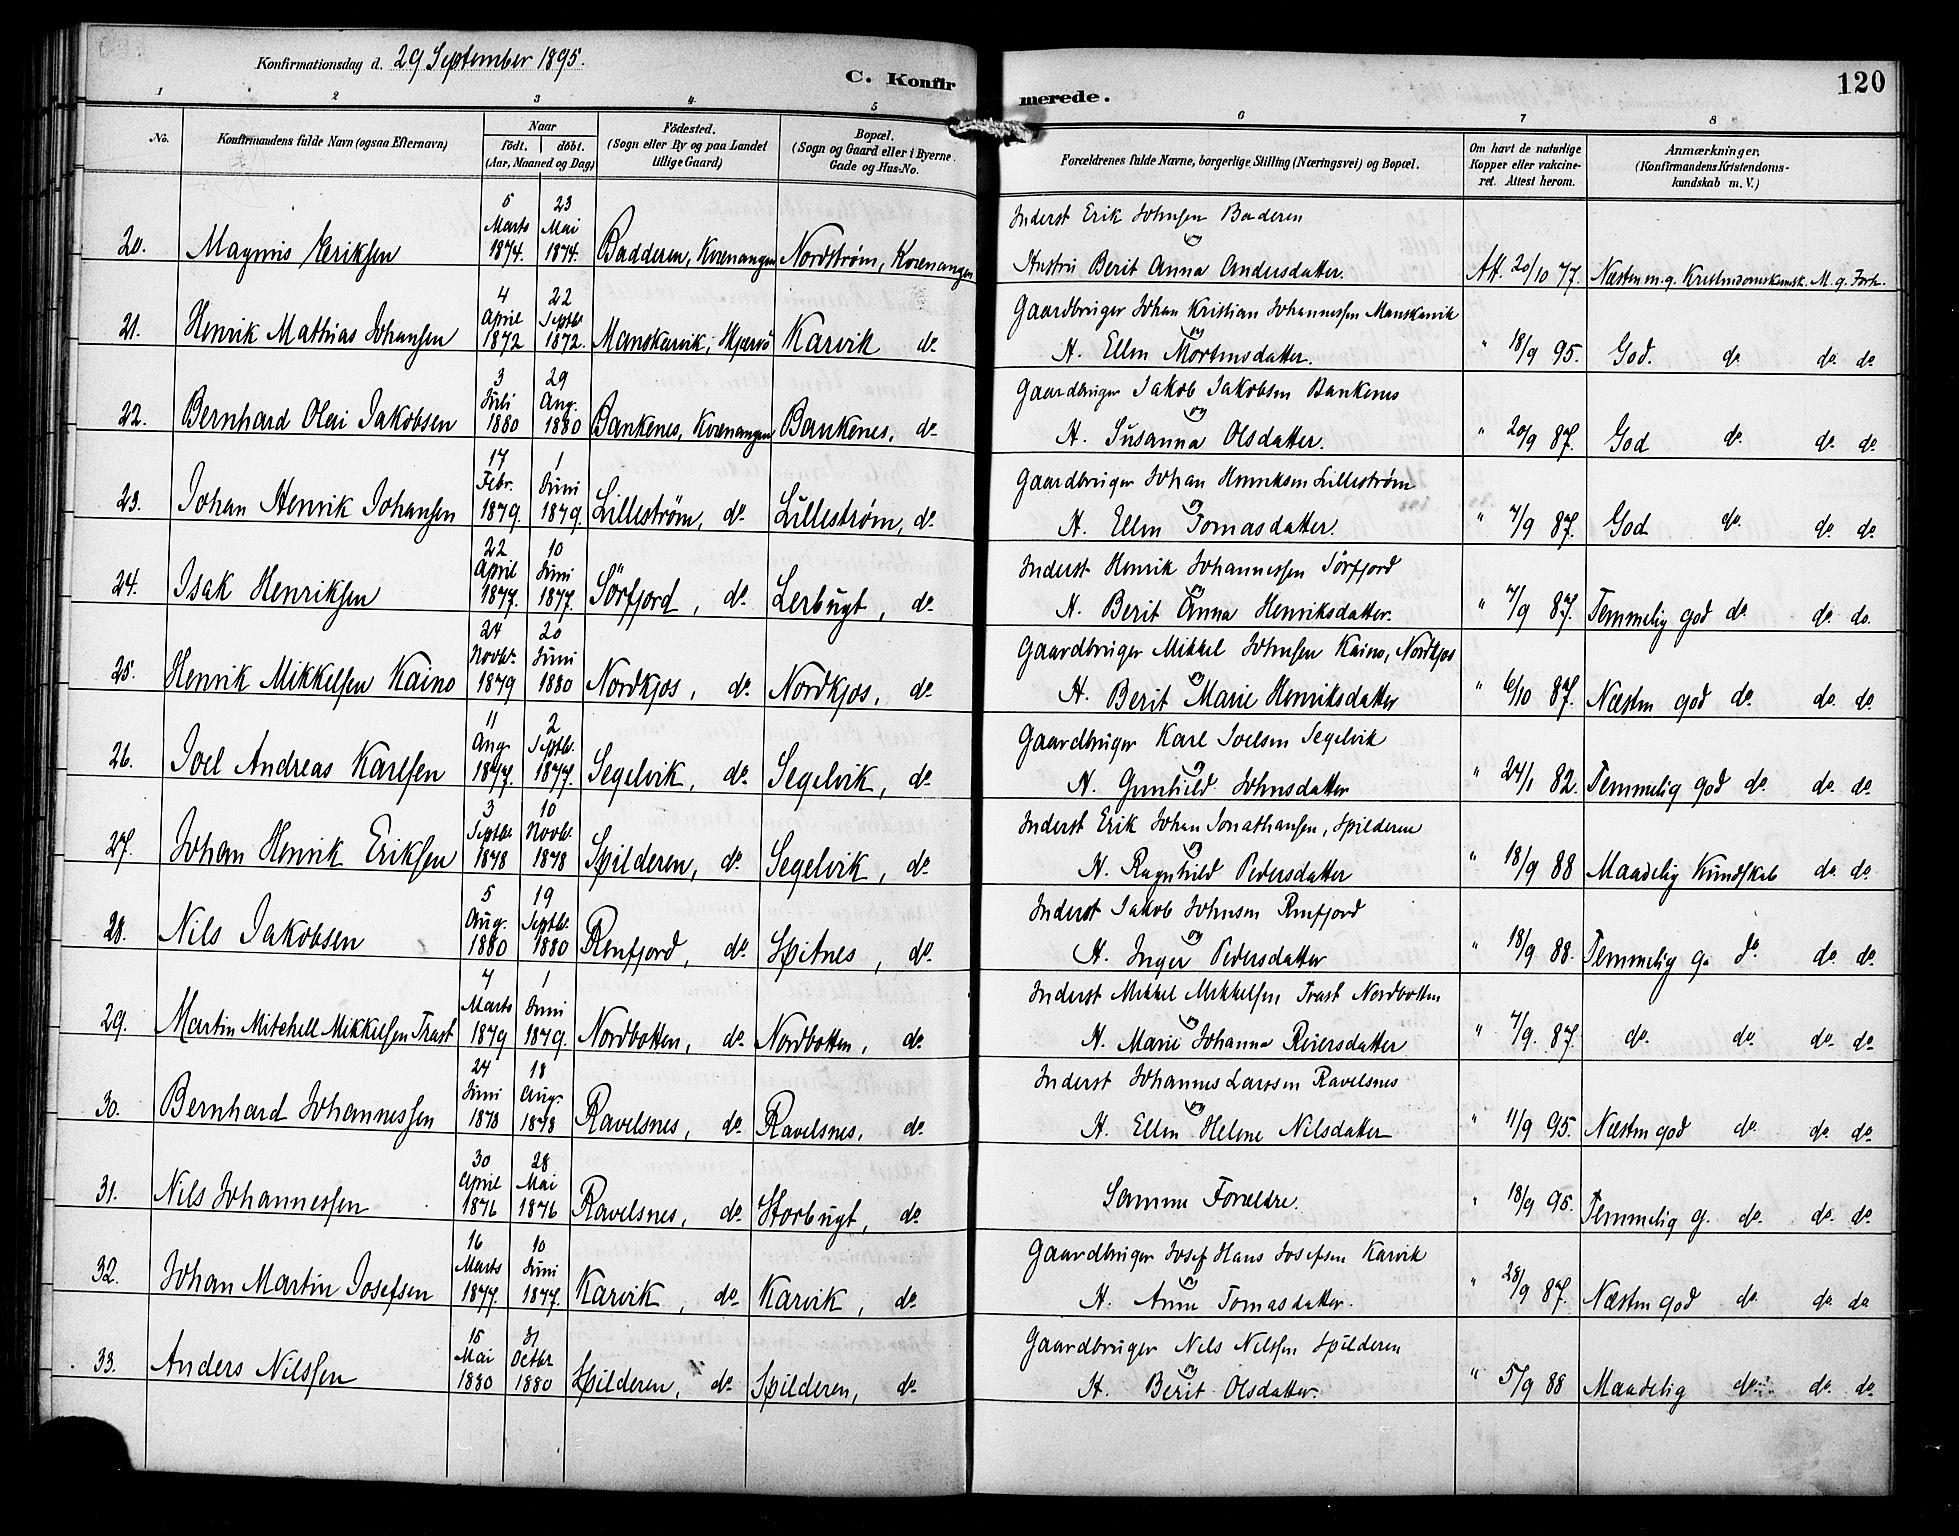 Konfirmationsdag d. 29 September 1895.
C. Konfirmerede.
120
1 2 3 4 5 6 7 8
No.
Konfirmandens fulde Navn (ogsaa Efternavn)
Naar
födt. döbt.
(Aar, Maaned og Dag)
Födested.
(Sogn eller By og paa Landet
tillige Gaard)
Bopæl.
(Sogn og Gaard eller i Byerne
Gade og Hus-No.
Forældrenes fulde Navne, borgerlige Stilling (Næringsvei) og Bopæl.
Om havt de naturlige
Kopper eller vakcine-
ret. Attest herom.
Anmærkninger,
(Konfirmandens Kristendoms-
kundskab m. V.)
20. Magnus Eriksen 5 Marts 1874. 23 Mai 1874. Badderen, Kvænangen Nordstrøm, Kvænangen Inderst Erik Johnsen Badderen
og
Hustru Berit Anna Andersdatter. Att. 20/10 77. Næsten m. g. Kristendomskundsk. M. g. Forh.
21. Henrik Mathias Johansen 4 April 1872 22 Septbr 1872. Manskarvik, Skjervö Karvik do. Gaardbruger Johan Kristian Johannessen Manskarvik
og
H. Ellen Mortensdatter. " 18/9 95. God. do. do. do.
22. Bernhard Olai Jakobsen 3 Juli 1880 29 Aug. 1880 Bankenes, Kvænangen Bankenes, do. Gaardbruger Jakob Jakobsen Bankenes
og
H. Susanna Olsdatter. " 20/9 87. God do. do. do.
23. Johan Henrik Johansen 17 Febr. 1879. 1 Juni 1879. Lillestrøm, do. Lillestrøm, do. Gaardbruger Johan Henriksen Lillestrøm
og
H. Ellen Tomasdatter. " 7/9 87. God do. do. do.
24. Isak Henriksen 22 April 1877. 10 Juni 1877. Sörfjord, do. Lerbugt, do. Inderst Henrik Johannessen Sörfjord
og
H. Berit Anna Henriksdatter. " 7/9 87. Temmelig god do. do. do.
25. Henrik Mikkelsen Kaino 24 Novbr. 1879 20 Juni 1880 Nordkjos, do. Nordkjos, do. Gaardbruger Mikkel Johnsen Kaino, Nordkjos
og
H. Berit Marie Henriksdatter " 6/10 87. Næsten god do. do. do.
26. Joel Andreas Karlsen 11 Aug. 1877. 2 Septbr. 1877. Segelvik, do. Segelvik, do. Gaardbruger Karl Joelsen Segelvik
og
H. Gunhild Johnsdatter " 24/1 82. Temmelig god do. do. do.
27. Johan Henrik Eriksen 3 Septbr 1878 10 Novbr 1878 Spilderen, do. Segelvik, do. Inderst Erik Johan Jonathansen, Spilderen
og
H. Ragnhild Pedersdatter " 18/9 88 Maadelig Kundskab do. do.
28. Nils Jakobsen 5 Aug. 1880 19 Septbr. 1880 Renfjord, do. Spitnes, do. Inderst Jakob Johnsen Renfjord
og
H. Inger Pedersdatter " 18/9 88. Temmelig g. do. do. do.
29. Martin Mitchell Mikkelsen Trast 7 Marts 1879 1 Juni 1879. Nordbotten, do. Nordbotten, do. Inderst Mikkel Mikkelsen Trast Nordbotten
og
H. Marie Johanna Reiersdatter " 7/9. 87. do. do. do. do.
30. Bernhard Johannessen 24 Juni 1878 18 Aug. 1878 Ravelsnes, do. Ravelsnes, do. Inderst Johannes Larssen Ravelsnes
og
H. Ellen Helene Nilsdatter " 11/9 95. Næsten god do. do. do.
31. Nils Johannessen 30 April 1876 28 Mai 1876 Ravelsnes, do. Storbugt, do. Samme Forældre. " 18/9 95. Temmelig g. do. do. do.
32. Johan Martin Josefsen 16 Marts 1877. 10 Juni 1877. Karvik, do. Karvik, do. Gaardbruger Josef Hans Josefsen Karvik
og
H. Anne Tomasdatter. " 28/9 87. Næsten god do. do. do.
33. Anders Nilssen 15 Mai 1880 31 Octbr 1880 Spilderen, do. Spilderen, do. Gaardbruger Nils Nilssen Spilderen
og
H. Berit Olsdatter. " 5/9 88 Maadelig do. do. do.